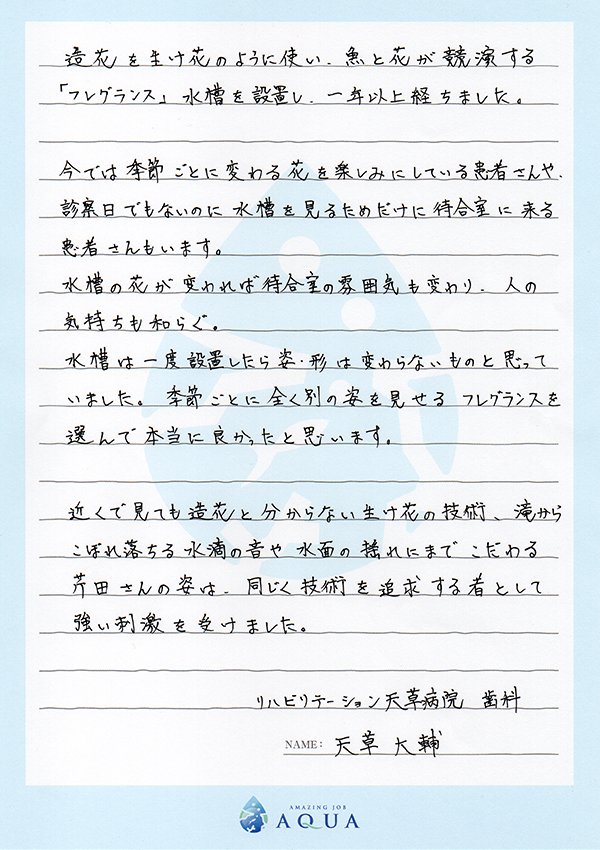 造花を生け花のように使い、魚と花が競演する
「フレグランス」水槽を設置し、一年以上経ちました。
今では季節ごとに変わる花を楽しみにしている患者さんや、
診察日でもないのに水槽を見るためだけに待合室に来る
患者さんもいます。
水槽の花が変われば待合室の雰囲気も変わり、人の
気持ちも和らぐ。
水槽は一度設置したら姿・形は変わらないものと思って
いました。季節ごとに全く別の姿を見せるフレグランスを
選んで本当に良かったと思います。
近くで見ても造花と分からない生け花の技術、滝から
こぼれ落ちる水滴の音や水面の揺れにまでこだわる
芹田さんの姿は、同じく技術を追求する者として
強い刺激を受けました。
リハビリテーション天草病院 歯科
NAME: 天草 大輔
AMAZING JOB
AQUA